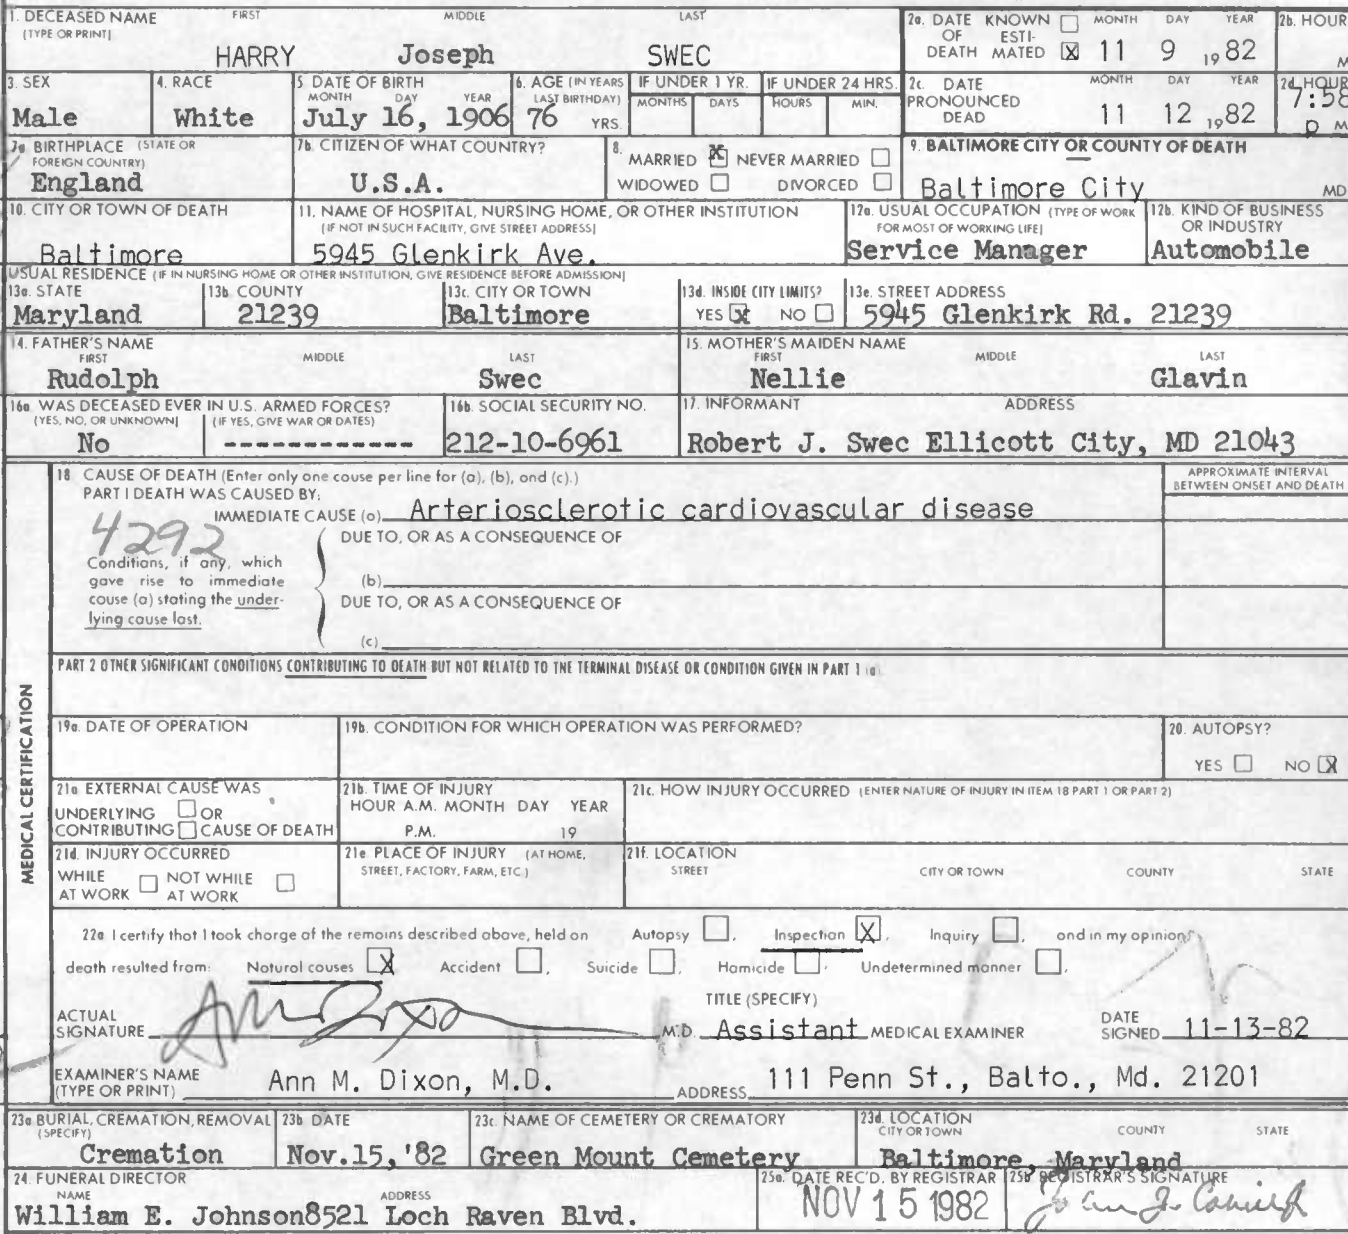 1. DECEASED NAME (TYPE OR PRINT) FIRST MIDDLE LAST
HARRY Joseph SWEC
2a. DATE OF DEATH KNOWN ☐ ESTIMATED ☒ MONTH DAY YEAR 11 9 1982
2b. HOUR M
3. SEX Male
4. RACE White
5 DATE OF BIRTH MONTH DAY YEAR July 16, 1906
6. AGE (IN YEARS LAST BIRTHDAY) 76 YRS.
IF UNDER 1 YR. MONTHS DAYS
IF UNDER 24 HRS. HOURS MIN.
2c. DATE PRONOUNCED DEAD MONTH DAY YEAR 11 12 1982
2d HOUR 7:58 p M
7a BIRTHPLACE (STATE OR FOREIGN COUNTRY) England
7b. CITIZEN OF WHAT COUNTRY? U.S.A.
8. MARRIED ☒ NEVER MARRIED ☐
WIDOWED ☐ DIVORCED ☐
9. BALTIMORE CITY OR COUNTY OF DEATH
Baltimore City MD
10. CITY OR TOWN OF DEATH Baltimore
11. NAME OF HOSPITAL, NURSING HOME, OR OTHER INSTITUTION (IF NOT IN SUCH FACILITY, GIVE STREET ADDRESS)
5945 Glenkirk Ave.
12a. USUAL OCCUPATION (TYPE OF WORK FOR MOST OF WORKING LIFE) Service Manager
12b. KIND OF BUSINESS OR INDUSTRY Automobile
USUAL RESIDENCE (IF IN NURSING HOME OR OTHER INSTITUTION, GIVE RESIDENCE BEFORE ADMISSION)
13a. STATE Maryland
13b. COUNTY 21239
13c. CITY OR TOWN Baltimore
13d. INSIDE CITY LIMITS? YES ☒ NO ☐
13e. STREET ADDRESS 5945 Glenkirk Rd. 21239
14. FATHER'S NAME FIRST MIDDLE LAST
Rudolph Swec
15. MOTHER'S MAIDEN NAME FIRST MIDDLE LAST
Nellie Glavin
16a WAS DECEASED EVER IN U.S. ARMED FORCES? (YES, NO, OR UNKNOWN) (IF YES, GIVE WAR OR DATES)
No ------------
16b. SOCIAL SECURITY NO. 212-10-6961
17. INFORMANT ADDRESS
Robert J. Swec Ellicott City, MD 21043
MEDICAL CERTIFICATION
18 CAUSE OF DEATH (Enter only one cause per line for (a), (b), and (c).)
APPROXIMATE INTERVAL BETWEEN ONSET AND DEATH
PART I DEATH WAS CAUSED BY:
IMMEDIATE CAUSE (a) Arteriosclerotic cardiovascular disease
4292
DUE TO, OR AS A CONSEQUENCE OF
Conditions, if any, which gave rise to immediate cause (a) stating the underlying cause last.
(b)
DUE TO, OR AS A CONSEQUENCE OF
(c)
PART 2 OTHER SIGNIFICANT CONDITIONS CONTRIBUTING TO DEATH BUT NOT RELATED TO THE TERMINAL DISEASE OR CONDITION GIVEN IN PART 1 (a)
19a. DATE OF OPERATION
19b. CONDITION FOR WHICH OPERATION WAS PERFORMED?
20. AUTOPSY? YES ☐ NO ☒
21a EXTERNAL CAUSE WAS
UNDERLYING ☐ OR
CONTRIBUTING ☐ CAUSE OF DEATH
21b. TIME OF INJURY
HOUR A.M. MONTH DAY YEAR
P.M. 19
21c. HOW INJURY OCCURRED (ENTER NATURE OF INJURY IN ITEM 18 PART 1 OR PART 2)
21d. INJURY OCCURRED
WHILE AT WORK ☐ NOT WHILE AT WORK ☐
21e PLACE OF INJURY (AT HOME, STREET, FACTORY, FARM, ETC.)
21f. LOCATION STREET CITY OR TOWN COUNTY STATE
22a I certify that I took charge of the remains described above, held on Autopsy ☐, Inspection ☒, Inquiry ☐, and in my opinion,
death resulted from: Natural causes ☒ Accident ☐, Suicide ☐, Homicide ☐, Undetermined manner ☐,
ACTUAL SIGNATURE Ann M Dixon M.D.
TITLE (SPECIFY) Assistant MEDICAL EXAMINER
DATE SIGNED 11-13-82
EXAMINER'S NAME (TYPE OR PRINT) Ann M. Dixon, M.D.
ADDRESS 111 Penn St., Balto., Md. 21201
23a BURIAL, CREMATION, REMOVAL (SPECIFY) Cremation
23b DATE Nov.15,'82
23c. NAME OF CEMETERY OR CREMATORY Green Mount Cemetery
23d. LOCATION CITY OR TOWN COUNTY STATE
Baltimore, Maryland
24. FUNERAL DIRECTOR NAME ADDRESS
William E. Johnson8521 Loch Raven Blvd.
25a. DATE REC'D. BY REGISTRAR NOV 15 1982
25b REGISTRAR'S SIGNATURE